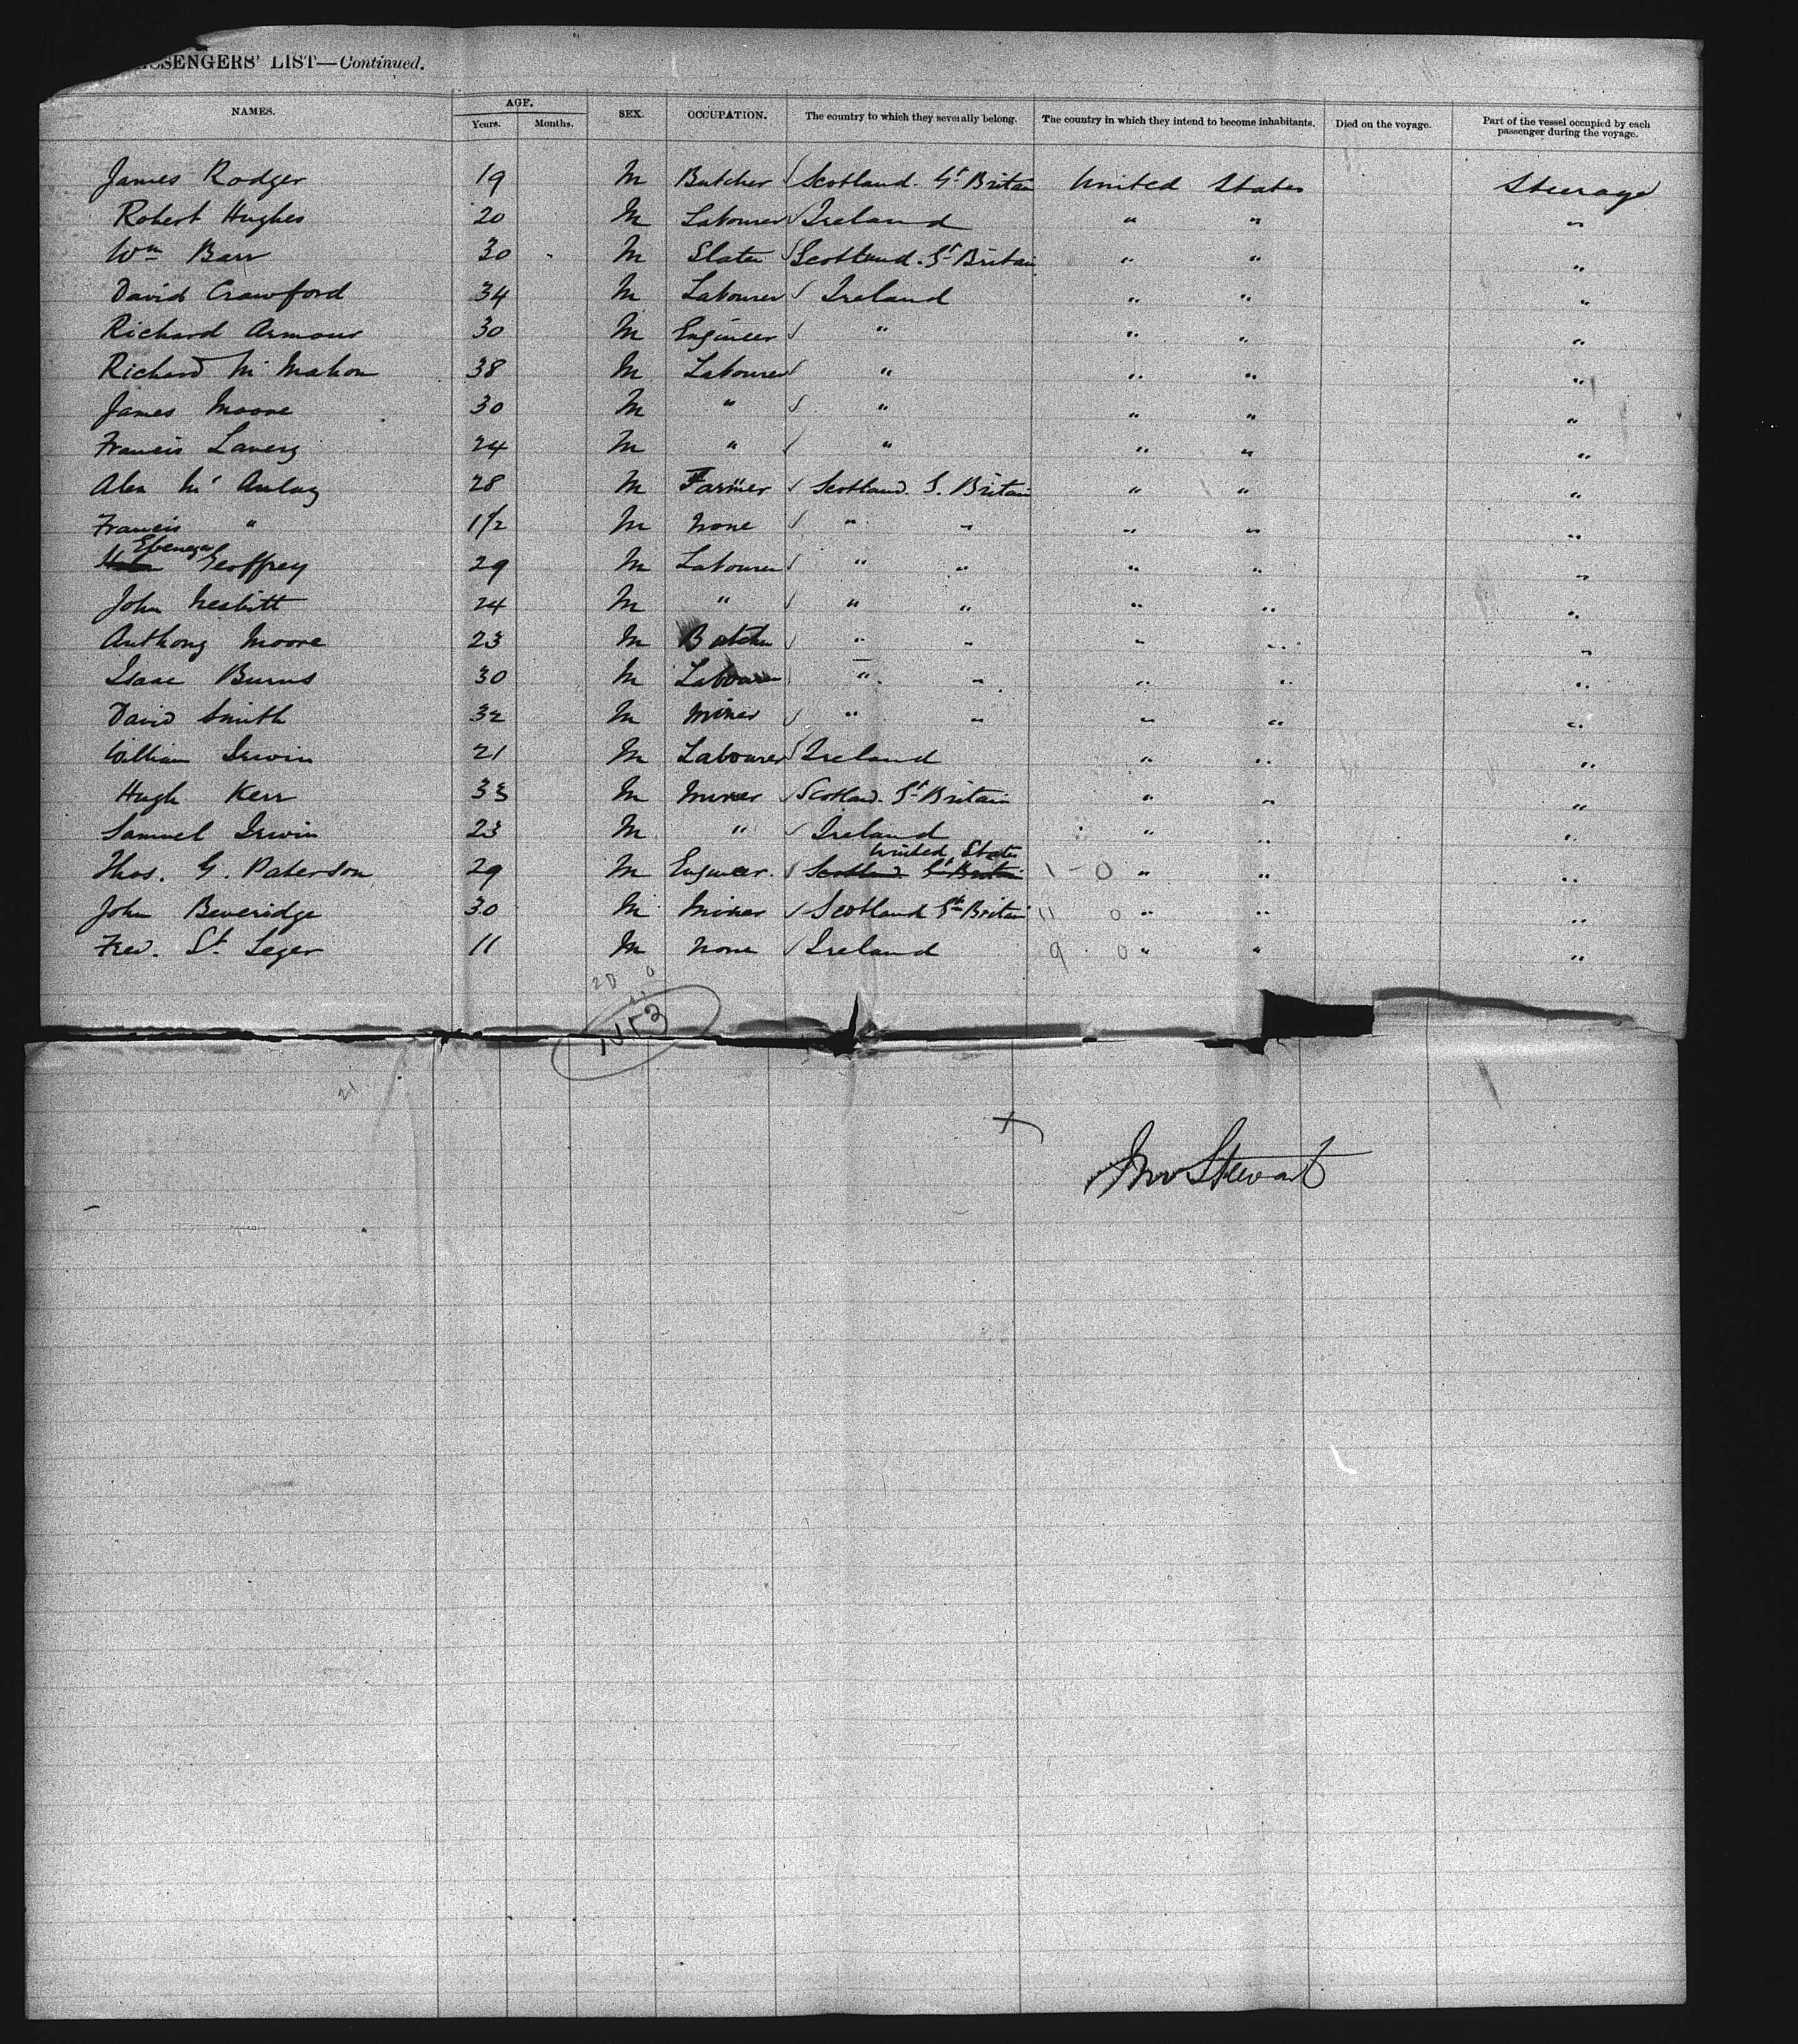 PASSENGERS' LIST—Continued.
NAMES. AGE. Years. Months. SEX. OCCUPATION. The country to which they severally belong. The country in which they intend to become inhabitants. Died on the voyage. Part of the vessel occupied by each passenger during the voyage.
James Rodger 19 M Butcher Scotland. Gt Britain United States Steerage
Robert Hughes 20 M Labourer Ireland " " "
Wm Barr 30 M Slater Scotland. Gt Britain " " "
David Crawford 34 M Labourer Ireland " " "
Richard Armour 30 M Engineer " " " "
Richard Mc Mahon 38 M Labourer " " " "
James Moore 30 M " " " " "
Francis Lavery 24 M " " " " "
Alex Mc Aulay 28 M Farmer Scotland. G. Britain " " "
Francis " 1½ M None " " " " "
Ebenezer Geoffrey 29 M Labourer " " " " "
John Nesbitt 24 M " " " " " "
Anthony Moore 23 M Butcher " " " " "
Isaac Burns 30 M Labourer " " " " "
David Smith 32 M Miner " " " " "
William Irwin 21 M Labourer Ireland " " "
Hugh Kerr 33 M Miner Scotland. Gt Britain " " "
Samuel Irwin 23 M " Ireland " " "
United States
Thos. G. Paterson 29 M Engineer. Scotland. Gt Britain 1 - 0 " " "
John Beveridge 30 M Miner Scotland Gt Britain 11 0 " " "
Fred. St. Leger 11 M None Ireland 9 0 " " "
20 0
21
Jno Stewart